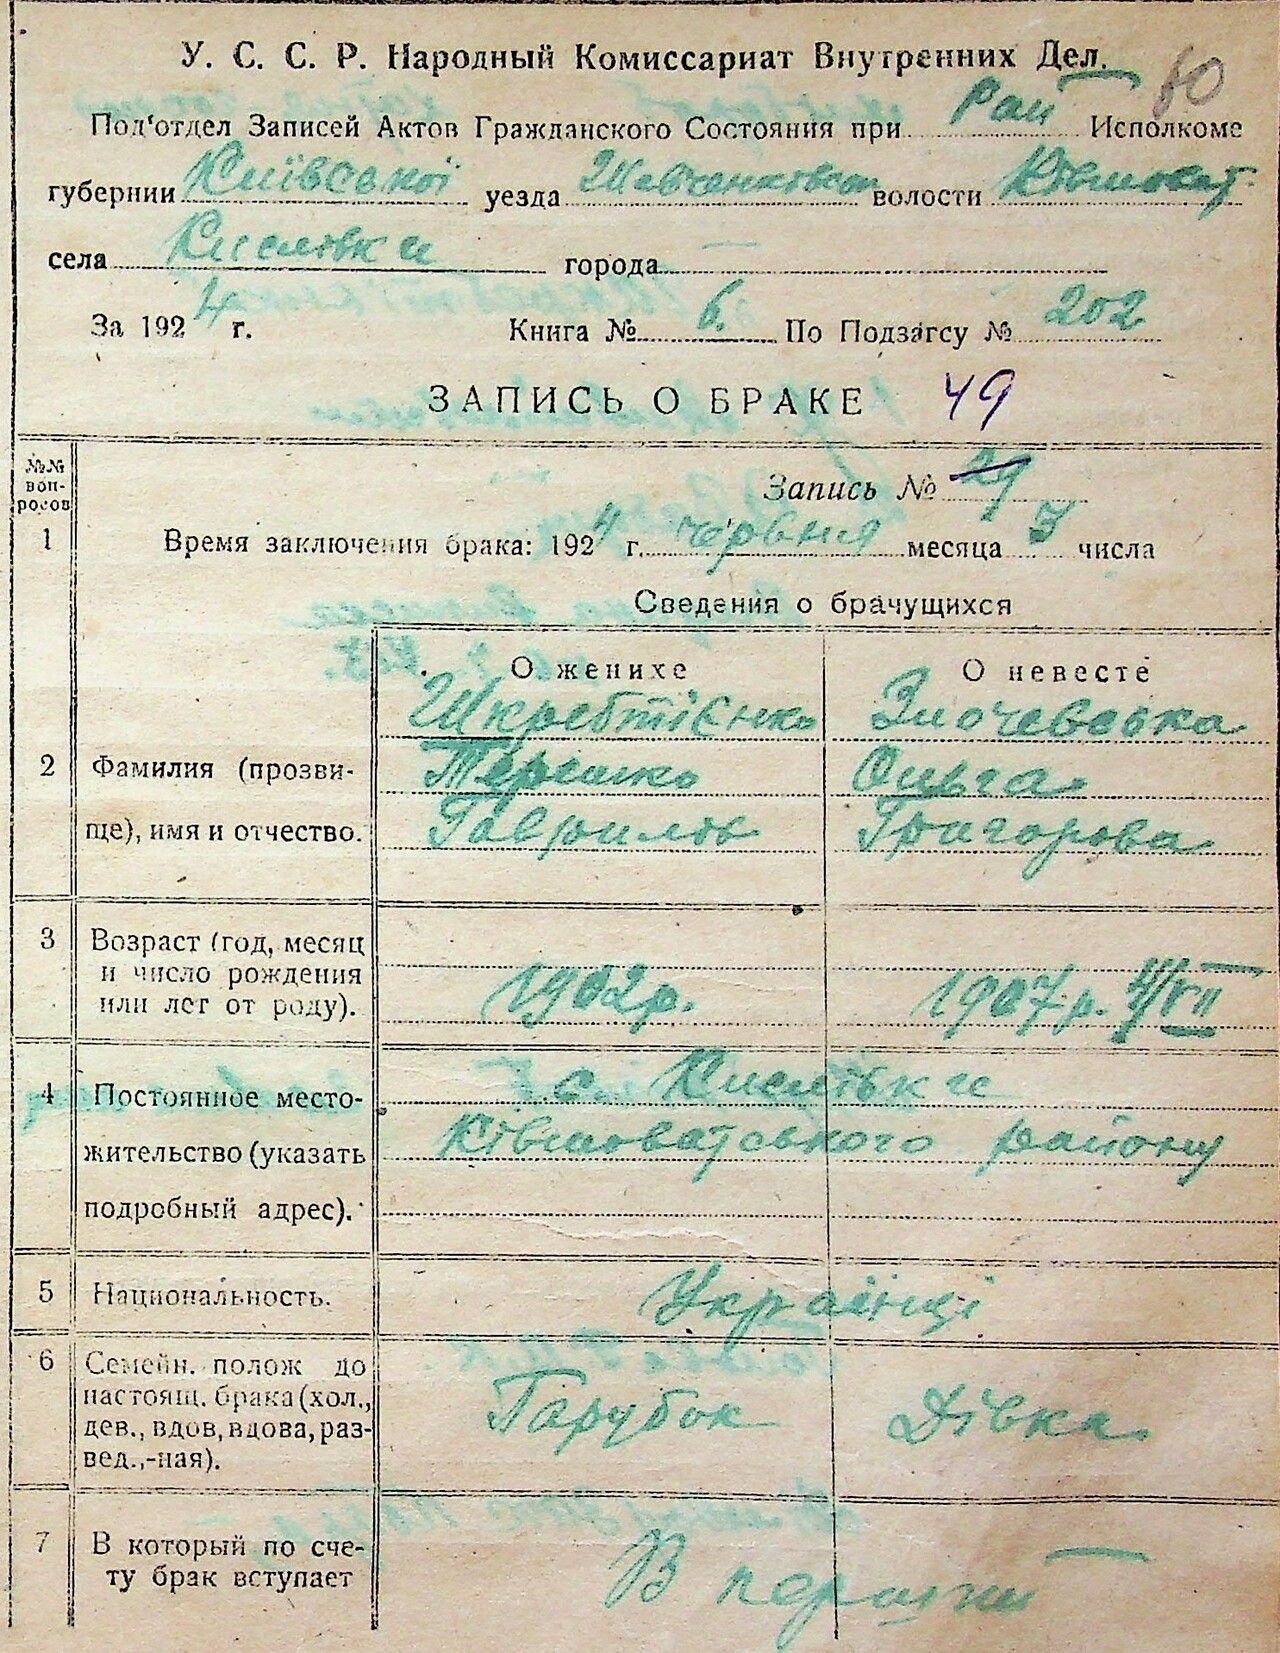 У. С. С. Р. Народный Комиссариат Внутренних Дел.
60
Под'отдел Записей Актов Гражданского Состояния при Рай Исполкоме
губернии Київської уезда Шевченківськ волости Ківшоват.
села Кислівки города —
За 1924 г. Книга № 6. По Подзагсу № 202
ЗАПИСЬ О БРАКЕ 49
№№ вопросов
Запись № 29
1 Время заключения брака: 1924 г. червня месяца 3 числа
Сведения о брачущихся
О женихе О невесте
Шкребтієнко Злочевська
2 Фамилия (прозви- Терешко Ольга
ще), имя и отчество. Гаврилів Григорова
3 Возраст (год, месяц
и число рождения
или лет от роду). 1902р. 1907р. 4/VII
4 Постоянное место- с. Кислівки
жительство (указать Ківшоватського району
подробный адрес).
5 Национальность. Українці
6 Семейн. полож до
настоящ. брака (хол., Парубок Дівка
дев., вдов, вдова, раз-
вед.,-ная).
7 В который по сче-
ту брак вступает В перший